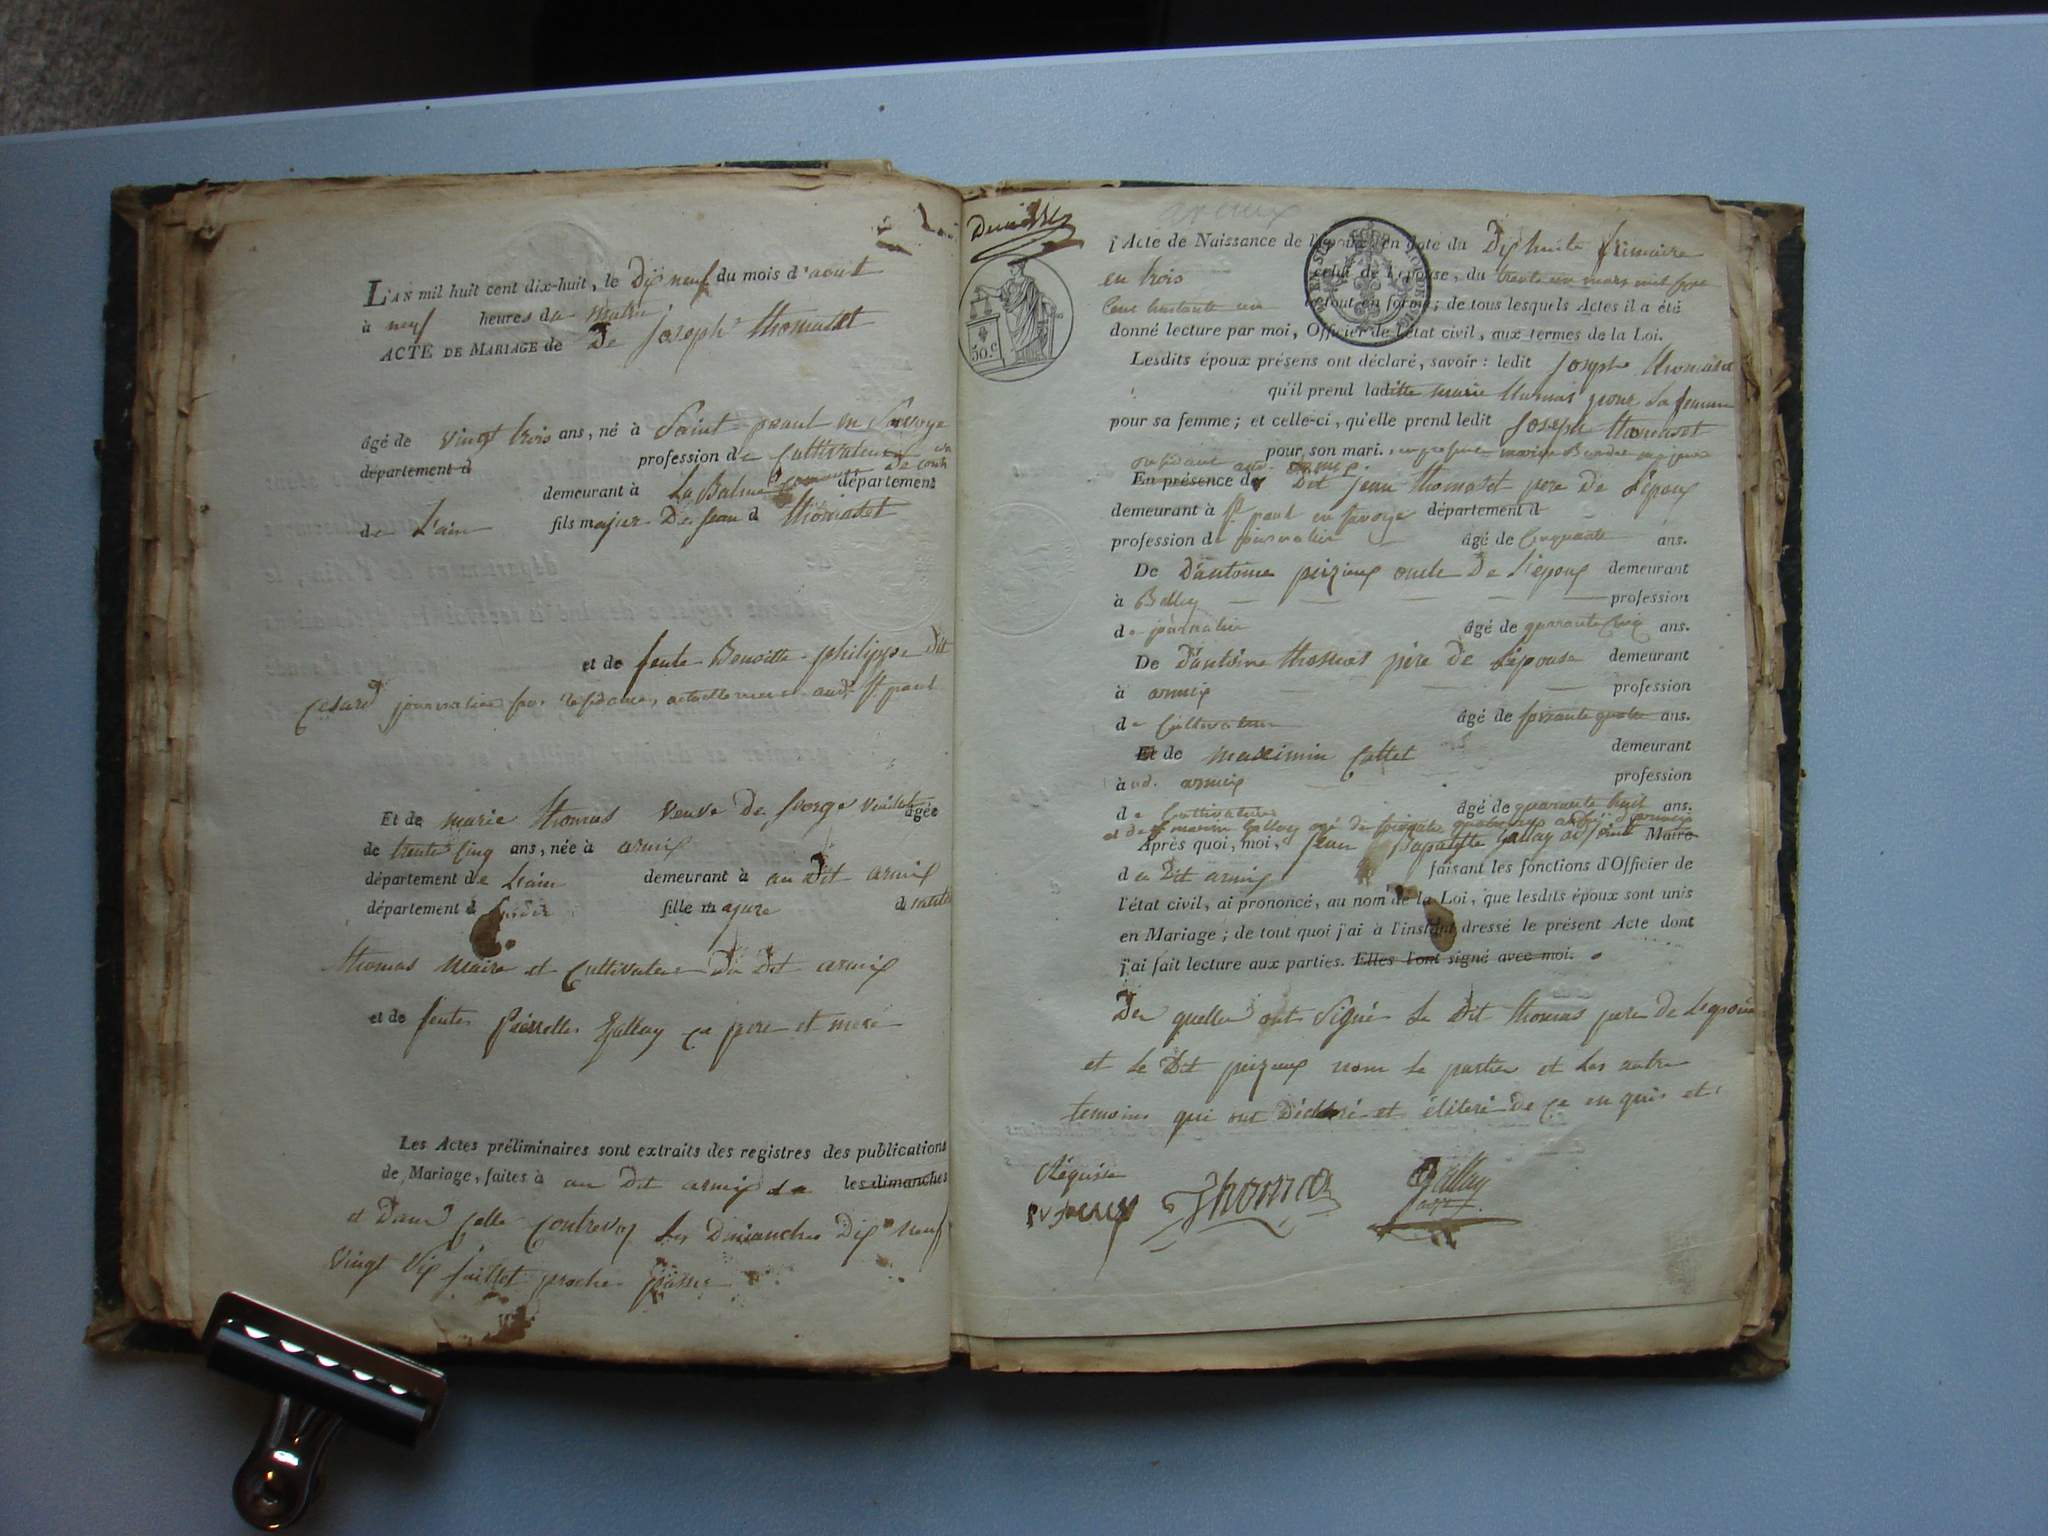 L'AN mil huit cent dix-huit, le Dix neuf du mois d'aout
à neuf heures du matin
ACTE DE MARIAGE de De Joseph thomaset
âgé de vingt trois ans, né à Saint paul en Savoye
département d profession de Cultivateur
demeurant à La Balme département
de L'ain fils majeur De Jean d thomaset
et de feute Benoitte philippe dit
journalier actuellement aud. St. paul
Et de marie thomas veuve De George âgée
de trente cinq ans, née à armix
département de L'ain demeurant à au Dit armix
département d fille majure d
thomas maire et Cultivateur Du Dit armix
et de feute Gallay ca pere et mere
Les Actes préliminaires sont extraits des registres des publications
de Mariage, faites à au Dit armix les dimanches
et Dans Celle Contrevoz Les Dimanches Dix neuf
vingt Six Juillet proche passé
50.c
Acte de Naissance de l'époux, en date du Dix huite frimaire
en trois celui de l'épouse, du trente un mars mil sept
cent huitante un le tout en forme; de tous lesquels Actes il a été
donné lecture par moi, Officier de l'état civil, aux termes de la Loi.
Lesdits époux présens ont déclaré, savoir: ledit Joseph thomaset
qu'il prend laditte marie thomas pour sa femme
pour sa femme; et celle-ci, qu'elle prend ledit Joseph thomaset
pour son mari.
En présence de Dit Jean thomaset pere De L'epoux
demeurant à St. paul en Savoye département d
profession de journalier âgé de Cinquante ans.
De D'antoine peizieux oncle De L'epoux demeurant
à Belley profession
de journalier âgé de quarante cinq ans.
De D'antoine thomas père de L'épouse demeurant
à armix profession
de Cultivateur âgé de soixante quatre ans.
Et de maximin Cottet demeurant
à ud. armix profession
de Cultivateur âgé de quarante huit ans.
Après quoi, moi, Jean Baptiste Gallay adjoint Maire
d u Dit armix faisant les fonctions d'Officier de
l'état civil, ai prononcé, au nom de la Loi, que lesdits époux sont unis
en Mariage; de tout quoi j'ai à l'instant dressé le présent Acte dont
j'ai fait lecture aux parties. Elles l'ont signé avec moi.
ont Signé Le Dit thomas pere de Lepouse
et le Dit peizieux non Le partie et Les autre
temoins qui ont Déclaré et éliteré de ce en quis et
Réquis
Thomas
Gallay